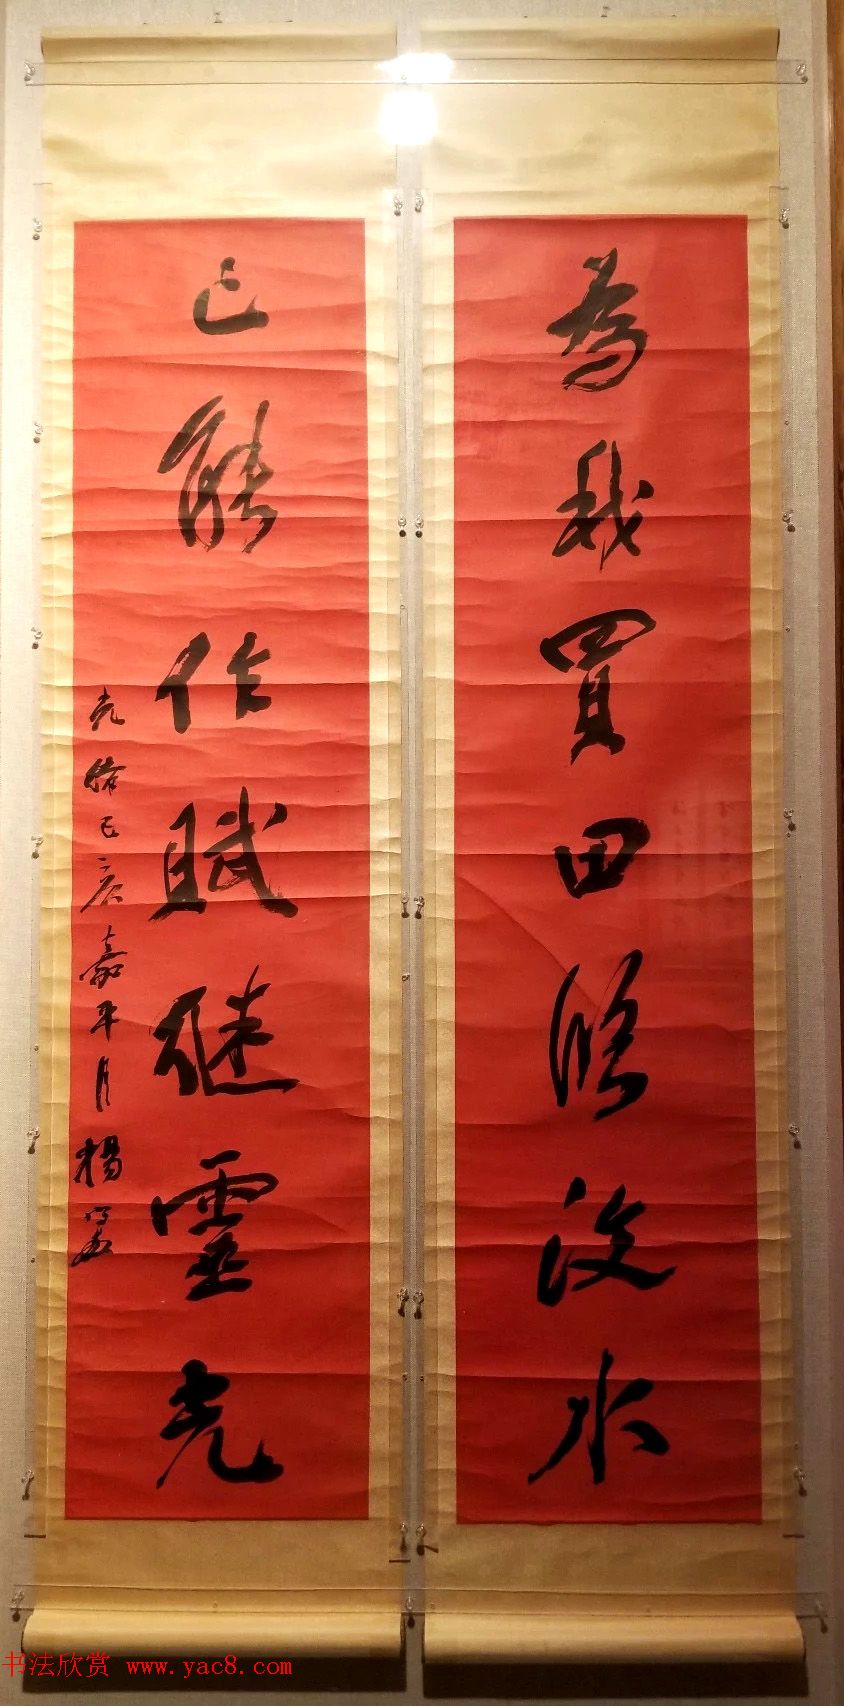 為我買田臨汶水
已能作賦繼靈光
光緒己亥嘉平月 楊守敬
书法欣赏 www.yac8.com